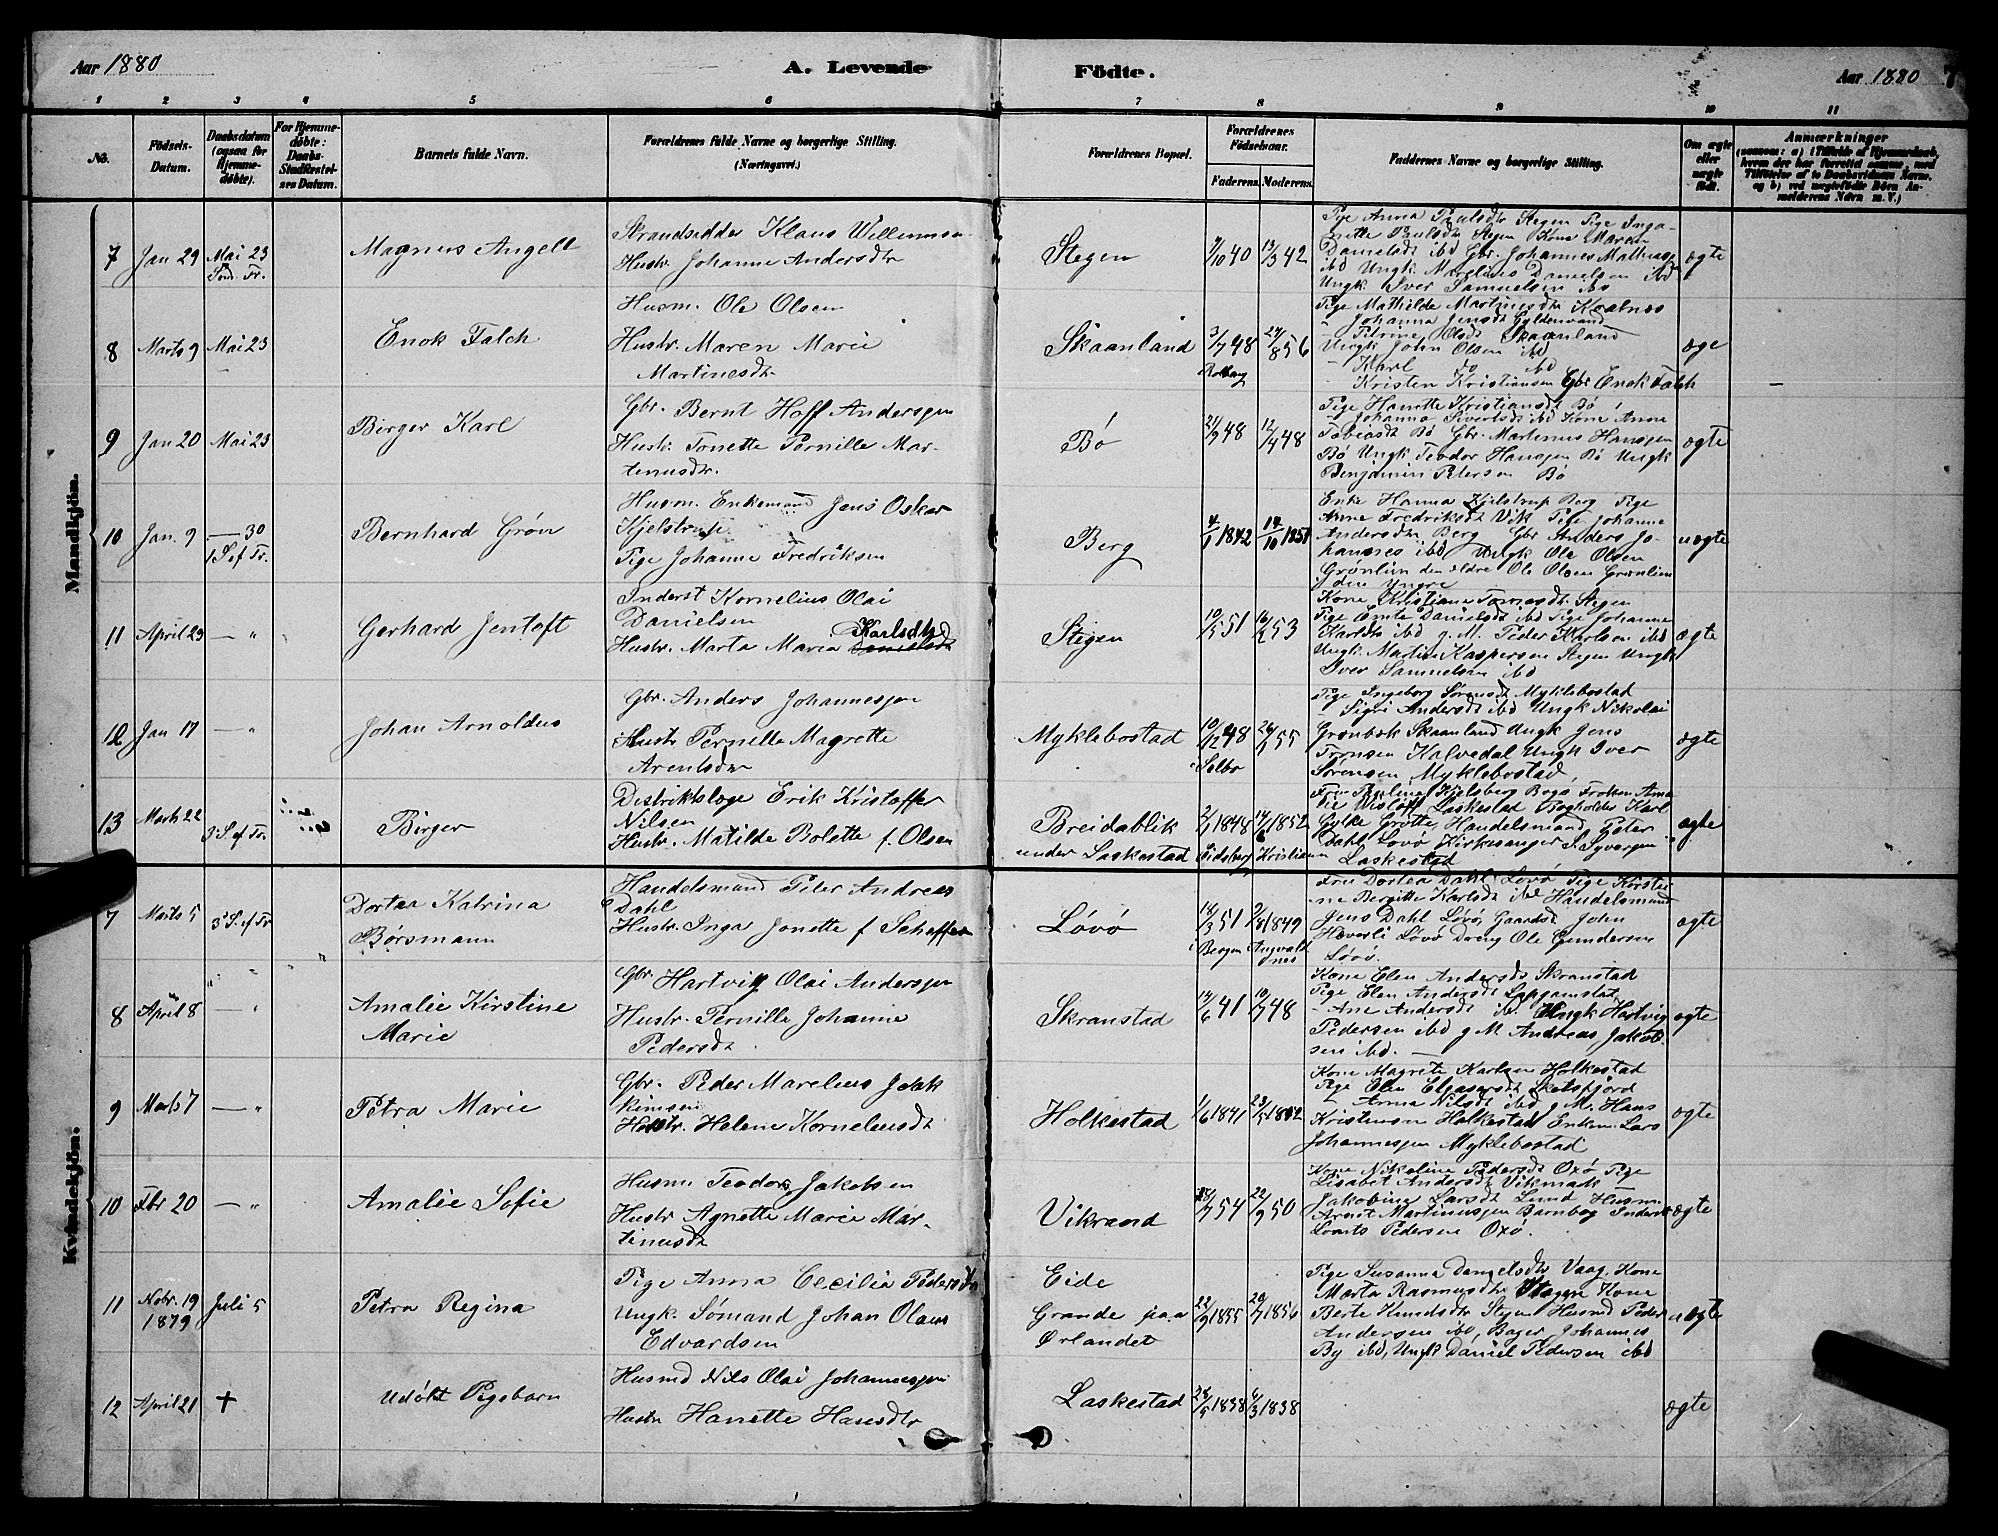 Aar 1880
A. Levende
Födte.
Aar 1880
7
1 2 3 4 5 6 7 8 9 10 11
No.
Födsels-
Datum.
Daabsdatum
(ogsaa for
Hjemme-
döbte).
For Hjemme-
döbte:
Daabs-
Stadfæstel-
ses Datum.
Barnets fulde Navn.
Forældrenes fulde Navne og borgerlige Stilling.
(Næringsvei.)
Forældrenes Bopæl.
Forældrenes
Födselsaar.
Faderens. Moderens.
Faddernes Navne og borgerlige Stilling.
Om ægte
eller
uægte
födt.
Anmærkninger
(saasom: a) i Tilfælde af Hjemmedaab,
hvem der har forrettet samme, med
Tilföielse af to Daabsvidners Navne.
og b) ved uægtefödte Börn An-
melderens Navn m. V.)
Mandkjön.
7 Jan 29 Mai 23
Magnus Angell
Strandsidder Klaus Willumsen
Hustr. Johanne Andersdtr
Stegen
9/10 40 13/3 42
Pige Anna Paulsdtr Stegen Pige Inga-
nette Paulsdtr Stegen Kone Maren
Danielsdt ibd Gbr. Johannes Mathiass.
ibd Ungk Marelius Danielsen ibd
Ungk Iver Samuelsen ibd
ægte
8 Marts 9 Mai 23
Enok Falch
Husm. Ole Olsen
Hustr. Maren Marie
Martinesdtr
Skaanland
3/7 48 24/8 56
Pige Mathilde Martinesdtr
Johanna Jensdt
Petrine Olsdt Skaanland
Ungk John Olsen ibd
Karl do ibd
Kristen Kristiansen Gbr Enok Falch
æge
9 Jan 20 Mai 23
Birger Karl
Gbr. Bernt Hoff Andersen
Hustr. Tonette Pernille Mar-
tinusdtr.
Bø
21/9 48 12/4 48
Pige Hanette Kristiansdt Bø
Johanna Sivertsdt ibd Kone Anne
Tobiasdt Bø Gbr. Martinus Hansen
Bø Ungk Teodor Hansen Bø Ungk
Benjamin Petersen Bø
ægte
10 Jan. 9 — 30
1 S ef Tr.
Bernhard Grøn
Husm. Enkemand Jens Oskar
Kjelstrup
Pige Johanne Fredriksen
Berg
4/1 1842 14/10 1851
Enke Hanna Kjelstrup Berg Pige
Anne Fredriksdt Vik Pige Johanne
Andersdtr Berg Gbr Anders Jo-
hannes ibd Ungk Ole Olsen
Grønlien den eldre Ole Olsen Grønlien
den Yngre
uægte
11 April 23 — "
Gerhard Jentoft
Inderst Kornelius Olai
Danielsen
Hustr. Marta Maria Karlsdtr
Stegen
10/5 51 16/2 53
Kone Kristiane Tomesdtr Stegen
Pige Emte Danielsdt ibd Pige Johanne
Karlsdt ibd g. M. Peder Karlsen ibd
Ungk. Martin Kaspersen Stegen Ungk
Iver Samuelsen ibd
ægte
12 Jan 17 — "
Johan Arnoldus
Gbr. Anders Johannesen
Hustr Pernille Magrette
Arentsdtr
Myklebostad
10/12 48 26/1 55
i Selbo
Pige Ingeborg Sørensdt Myklebostad
Sigri Andersdt ibd Ungk Nikolai
Grønbæk Skaanland Ungk Jens
Tønsen Kalvedal Ungk Iver
Sørensen Myklebostad
ægte
13 Marts 22
3 S ef Tr.
Birger
Distriktslæge Erik Kristoffer
Nilsen
Hustr. Matilde Bolette f. Olsen
Breidablik
under Laskestad
2/1 1848 14/6 1852
Eidsberg Kristian
Kjelsberg Bogø Frøken Anna
Laskestad Fogholder Karl
Gylke Grøtte, Handelsmand Peter
Dahl Løvø Kirkesanger
Laskestad
ægte
Kvindekjön.
7 Marts 5
3 S. ef Tr
Dortea Katrina
Børsmann
Handelsmand Peter Andreas
Dahl
Hustr. Inga Jonette f Schøffer
Løvø
14/3 51 2/8 1849
i Bergen
Fru Dortea Dahl Løvø Pige Kirsti-
ne Bergitte Karlsdt ibd Handelsmand
Jens Dahl Løvø Gaardsd John
Heverli Løvø Dreng Ole Gundersen
Løvø.
ægte
8 April 8 — "
Amalie Kirstine
Marie
Gbr. Hartvig Olai Andersen
Hustr. Pernille Johanne
Pedersdt
Skranstad
14/6 41 10/7 48
Kone Elen Andersdt Skranstad
Pige Elen Andersdt
- Ane Andersdt Ungk Hartvig
Pedersen ibd g M. Andreas Jakob-
sen ibd. —
ægte
9 Marts 7 — "
Petra Marie
Gbr. Peder Marelius Joak
kimsen
Hustr. Helene Korneliusdt
Holkestad
1/6 1841 23/5 1842
Kone Magrete Karlsen Holkestad
Pige Olen Eleasersdt
- Anna Nilsdt ibd g M. Hans
Kristensen Holkestad Enkem Lars
Johannesen Myklebostad
ægte
10 Fbr 20 — "
Amalie Sofie
Husm Teodor Jakobsen
Hustr Agnette Marie Mar-
tinusdt
Vikrand
54 22/9 50
Kone Nikoline Pedersdt Oxø Pige
Lisabet Andersdt Vikmark
Jakobine Larsdt Lund Husm.
Arnt Martinusen Barnbog Inderst
Lorents Pedersen Oxø.
ægte
11 Nobr. 19
1879
Juli 5
Petra Regina
Pige Anna Cecilia Pedersdtr
Ungk. Sømand Johan Olaus
Edvardsen
Eide
Grande paa
Ørlandet
22/9 1855 20/7 1856
Pige Susanna Danielsdtr Vaag Kone
Marta Rasmusdtr Stegen Kone
Berte Knudsdtr Stegen Husmd Peder
Andersen ibd, Bager Johannes
By ibd, Ungk Daniel Pedersen ibd
uægte
12 April 21 +
Udøbt Pigebarn
Husmd Nils Olai Johannesen
Hustr Hanette Hansdtr
Laskestad
28/5 1838 6/3 1838
ægte